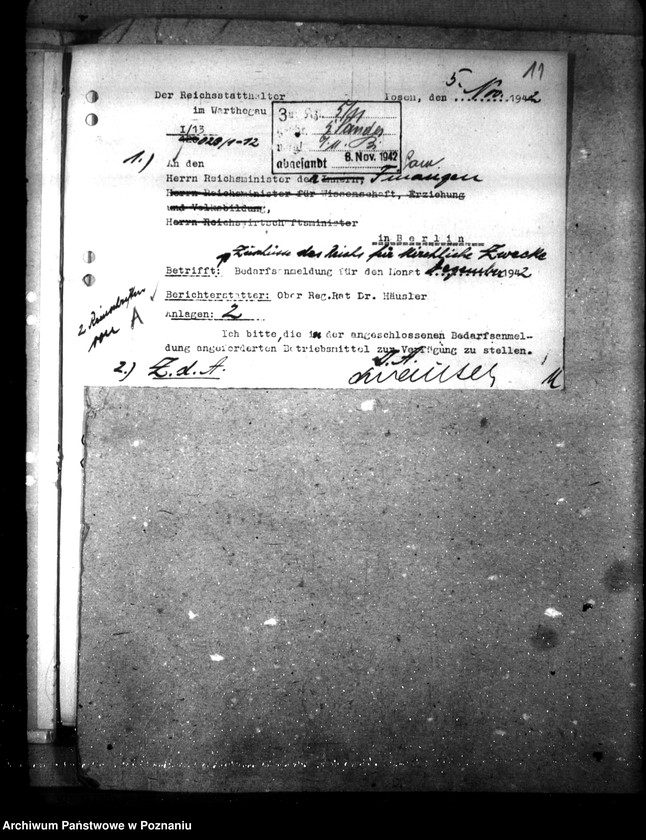 11
5. Nov.
Der Reichsstatthalter Posen, den 1942
im Warthegau
I/13
028/1-12
abgesandt 8. Nov. 1942
1.) An den
Herrn Reichsminister der Innern, Finanzen
Herrn Reichsminister für Wissenschaft, Erziehung
und Volksbildung,
Herrn Reichswirtschaftsminister
in Berlin
Zuschüsse des Reichs für kirchliche Zwecke
Betrifft: Bedarfsanmeldung für den Monat Dezember 1942
Berichterstatter: Ober Reg.Rat Dr. Häusler
2 Reinschriften
von A
Anlagen: 2
Ich bitte, die in der angeschlossenen Bedarfsanmel-
dung angeforderten Betriebsmittel zur Verfügung zu stellen.
I.A.
2.) Z.d.A.
Archiwum Państwowe w Poznaniu